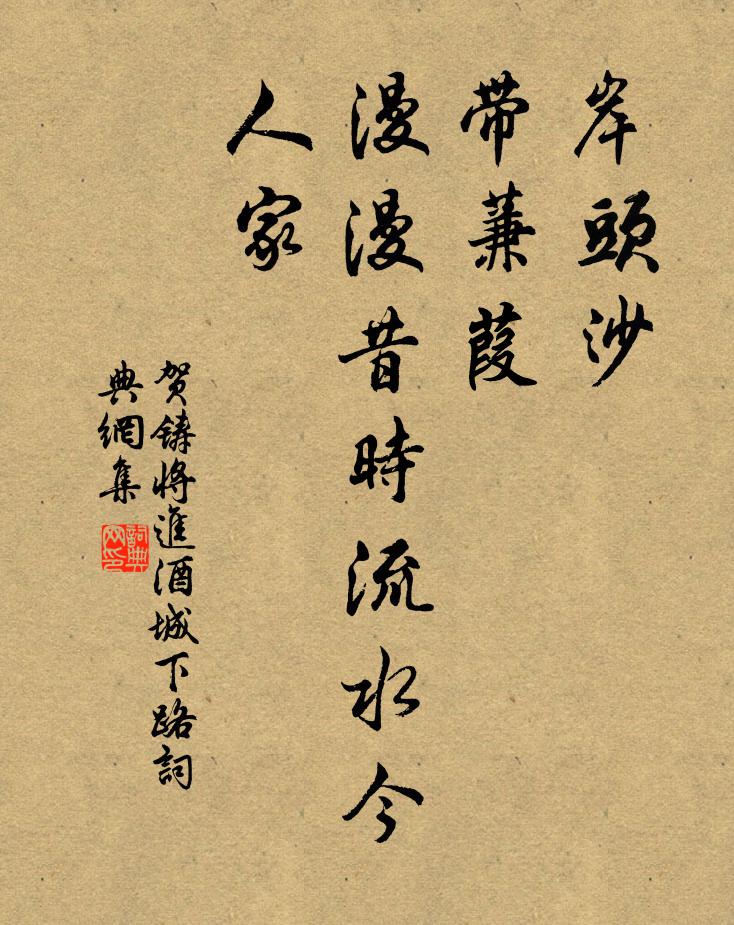 岸頭沙
帶蒹葭
漫漫昔時流水今
人家
賀鑄將進酒城下路詞
典網集
詞典
网印